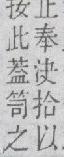 止奉決拾以
按此蓋笥之